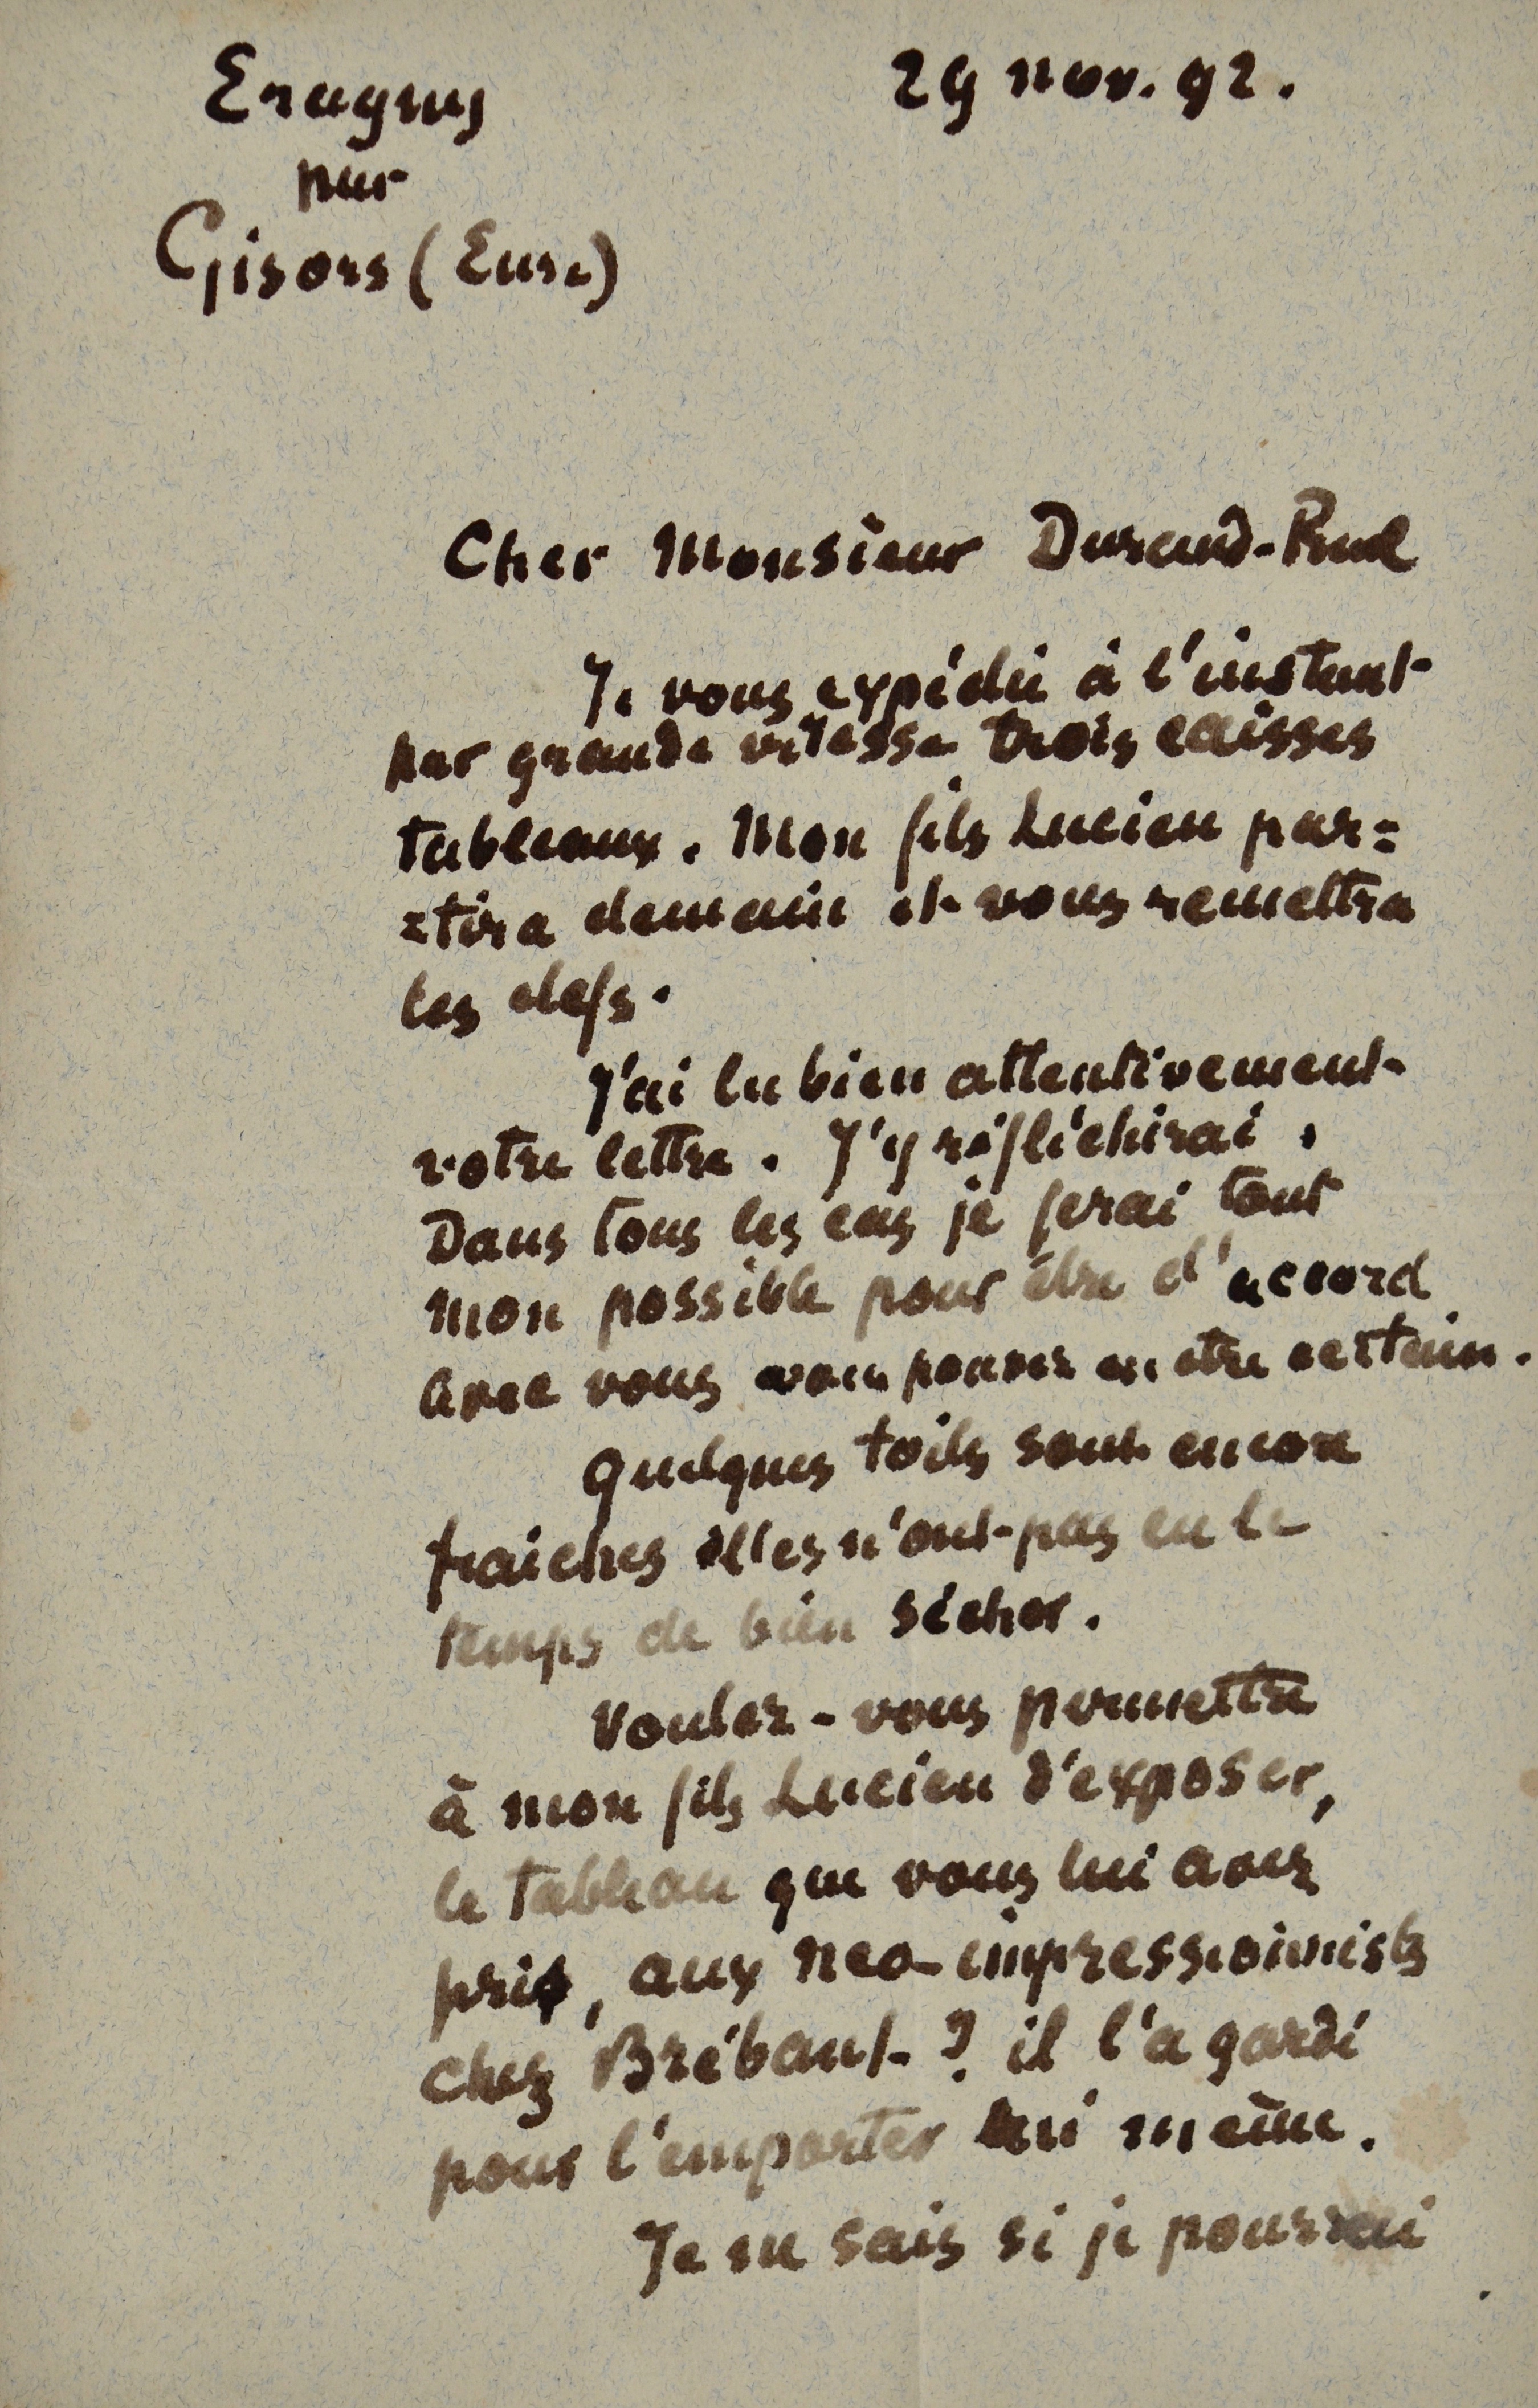 Eragny 29 nov. 92.
par
Gisors (Eure)
Cher Monsieur Durand-Ruel
Je vous expédie à l'instant
par grande vitesse trois caisses
tableaux. Mon fils Lucien par=
=tira demain et vous remettra
les clefs.
J'ai lu bien attentivement
votre lettre. J'y réfléchirai.
Dans tous les cas je ferai tout
mon possible pour être d'accord
avec vous vous pouvez en etre certain.
Quelques toiles sont encore
fraiches elles n'ont pas eu le
temps de bien sécher.
Voulez-vous permettre
à mon fils Lucien d'exposer,
le tableau que vous lui avez
pris, aux neo-impressionnistes
chez Brébant? il l'a gardé
pour l'emporter lui même.
Je ne sais si je pourrai